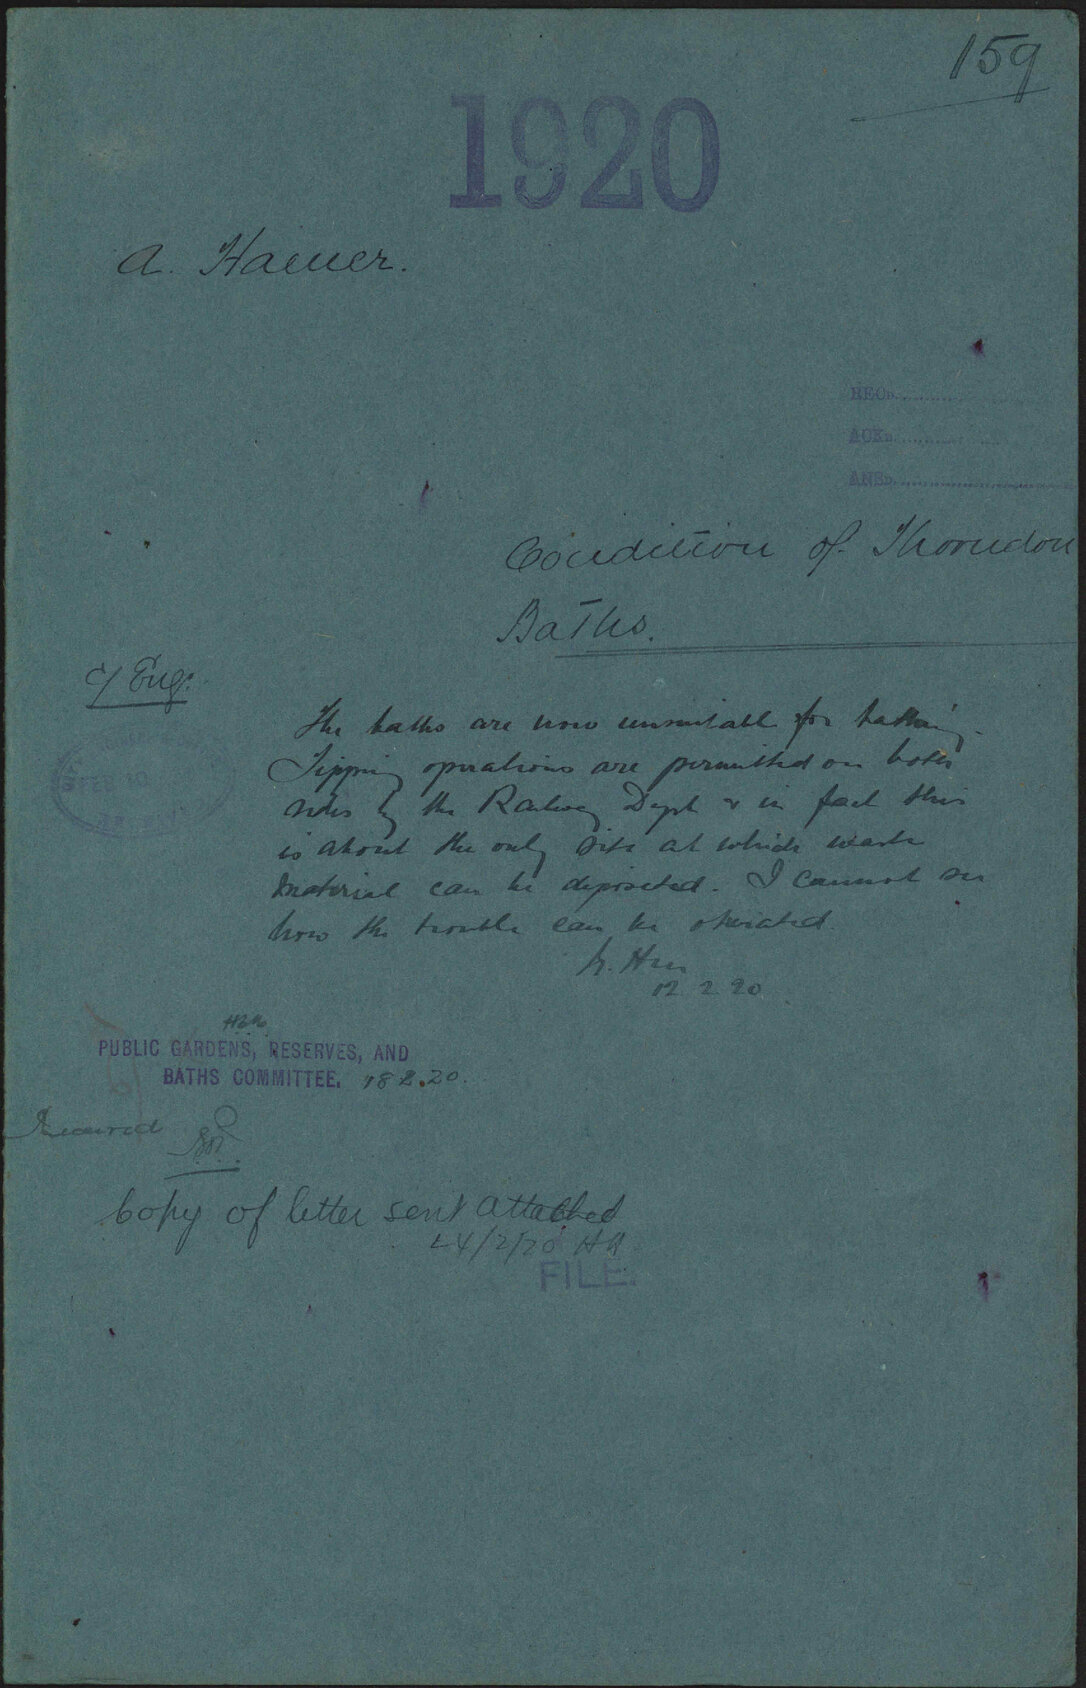 159
1920
A. Hamer.
RECD.
ACKD.
ANSD.
Condition of Thorndon
Baths.
C/ Eng.
The baths are now unsuitable for bathing.
Tipping operations are permitted on both
sides by the Railway Dept & in fact this
is about the only site at which waste
material can be deposited. I cannot see
how the trouble can be obviated.
12 2 20
PUBLIC GARDENS, RESERVES, AND
BATHS COMMITTEE. 18 2.20.
Received
Copy of letter sent attached
24/2/20 HR
FILE.